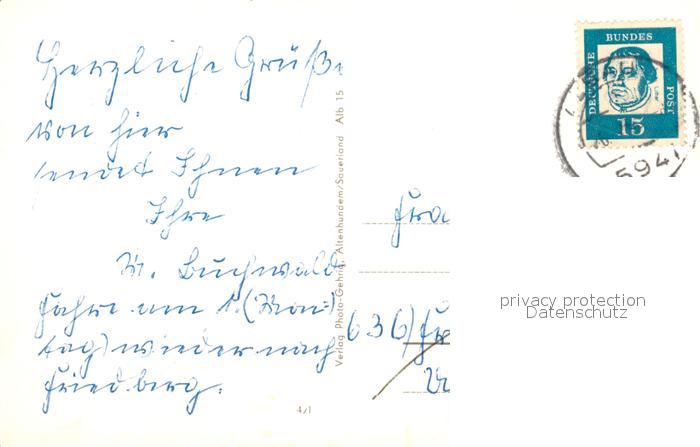 Herzliche Grüße
von hier
sendet Ihnen
Ihre
M. Buchwald
fahre am 1. (Mon-
tag) wieder nach
Friedberg.
Verlag Photo-Gehrig, Altenhundem/Sauerland Alb 15
4/1
DEUTSCHE
BUNDES
POST
15
594
Fra
636)
privacy protection
Datenschutz